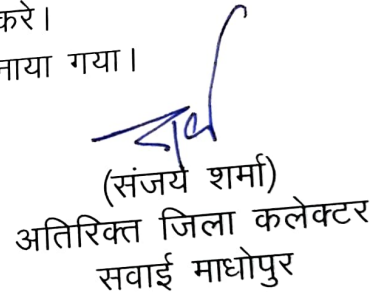 करे।
नाया गया।
(संजय शर्मा)
अतिरिक्त जिला कलेक्टर
सवाई माधोपुर